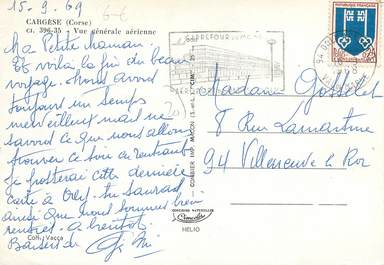 15-9-69
CARGÈSE (Corse)
CI. 396-35 - Vue générale aérienne
6-6
Ma Petite maman.
Et voilà la fin du beau
voyage. Nous avons
toujours un temps
merveilleux mais ne
savons ce que nous allons
trouver ce soir en rentrant
je posterai cette dernière
carte à Orly. tu sauras
ainsi que nous sommes bien
rentrés. à bientôt.
Baisers de
Coll. Vacca
20
COMBIER IMP. MACON
CARREFOUR
RÉPUBLIQUE FRANÇAISE
94
Madame Gosselet
8 Rue Lamartine
94 Villeneuve le Roi
Cimcolor
HELIO